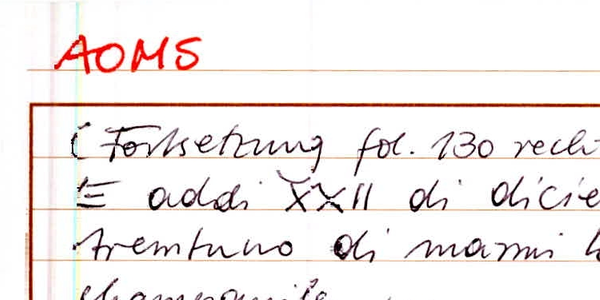 AOMS
(Fortsetzung fol. 130 recht
E addi XXII di dicie
trentuno di marmi